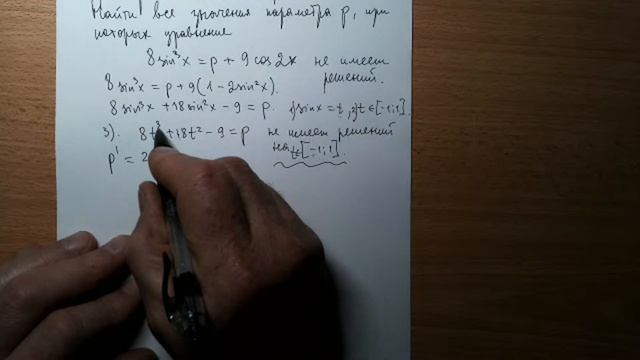 Найти все значения параметра p, при
которых уравнение
8 sin³x = p + 9 cos 2x не имеет
решений.
8 sin³x = p + 9(1 - 2sin²x)
8 sin³x + 18 sin²x - 9 = p. 1) sinx = t, 2) t ∈ [-1;1].
3). 8t³ + 18t² - 9 = p не имеет решений
на t∈[-1;1].
p' = 2